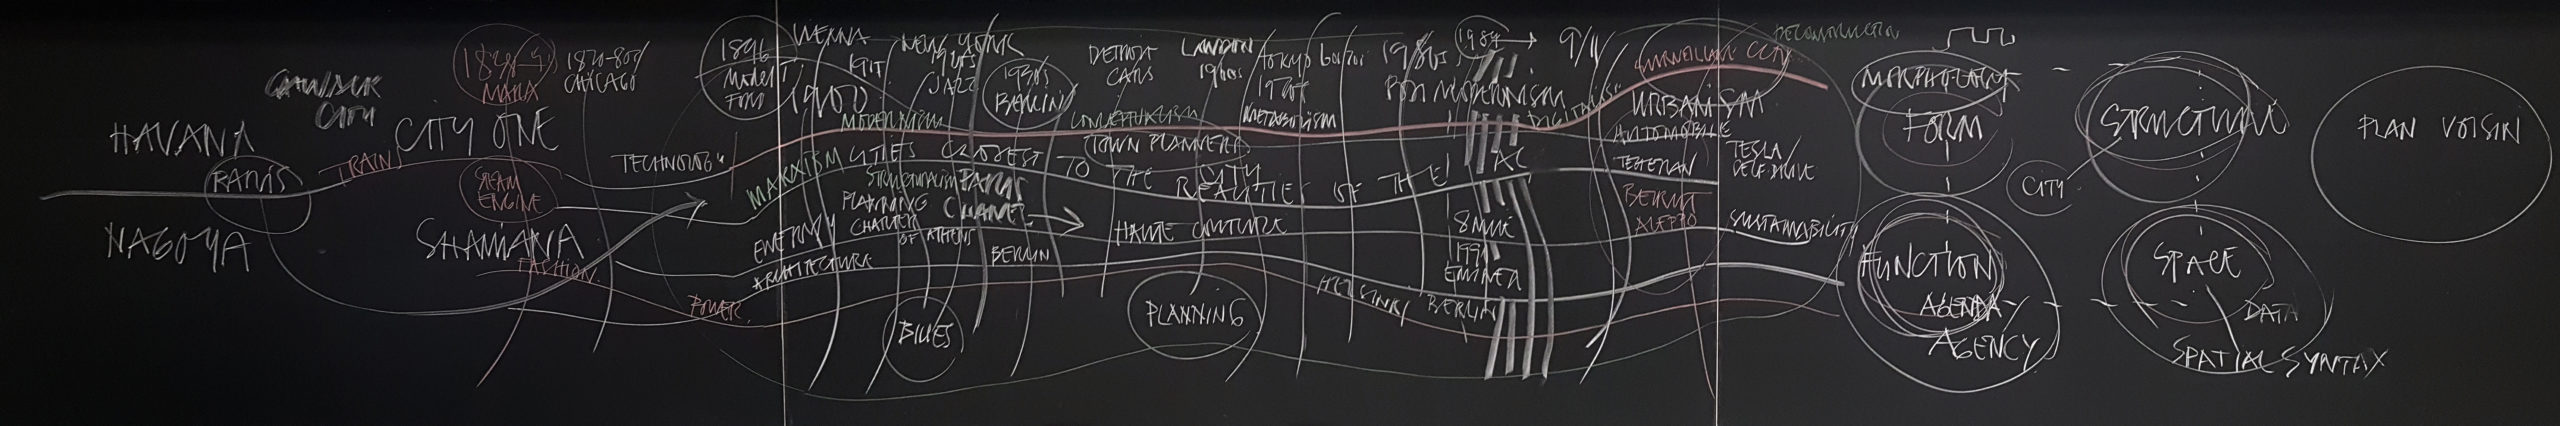 HAVANA
PARIS
NAGOYA
CITY
TRAIN
CITY ONE
MARX
STEAM
ENGINE
SHAMIANA
FASHION
1870-80s/
CHICAGO
TECHNOLOGY
POWER
1896
MODEL T
FORD
VIENNA
1900
MODERNISM
MARXISM
CITIES CLOSEST TO THE REALITIES OF THE
CITY
STRUCTURALISM
PARIS
PLANNING
CHARTER
OF ATHENS
CHANEL
ENERGY
ARCHITECTURE
BERLIN
BLUES
NEW YORK
JAZZ
1930s
BERLIN
DETROIT
CARS
CONCEPTUALISM
TOWN PLANNERS
HAUTE COUTURE
PLANNING
LONDON
1960s
TOKYO
1970s
METABOLISM
HELSINKI
BERLIN
1980s
POST MODERNISM
1984
AC
8 MILE
EMINEM
9/11
SURVEILLANCE CCTV
DECONSTRUCTION
URBANISM
AUTOMOBILE
TEHERAN
BEIRUT
ALEPPO
TESLA/
SELF DRIVE
SUSTAINABILITY
MORPHOLOGY
FORM
FUNCTION
AGENDA
AGENCY
STRUCTURE
CITY
SPACE
DATA
SPATIAL SYNTAX
PLAN VOISIN